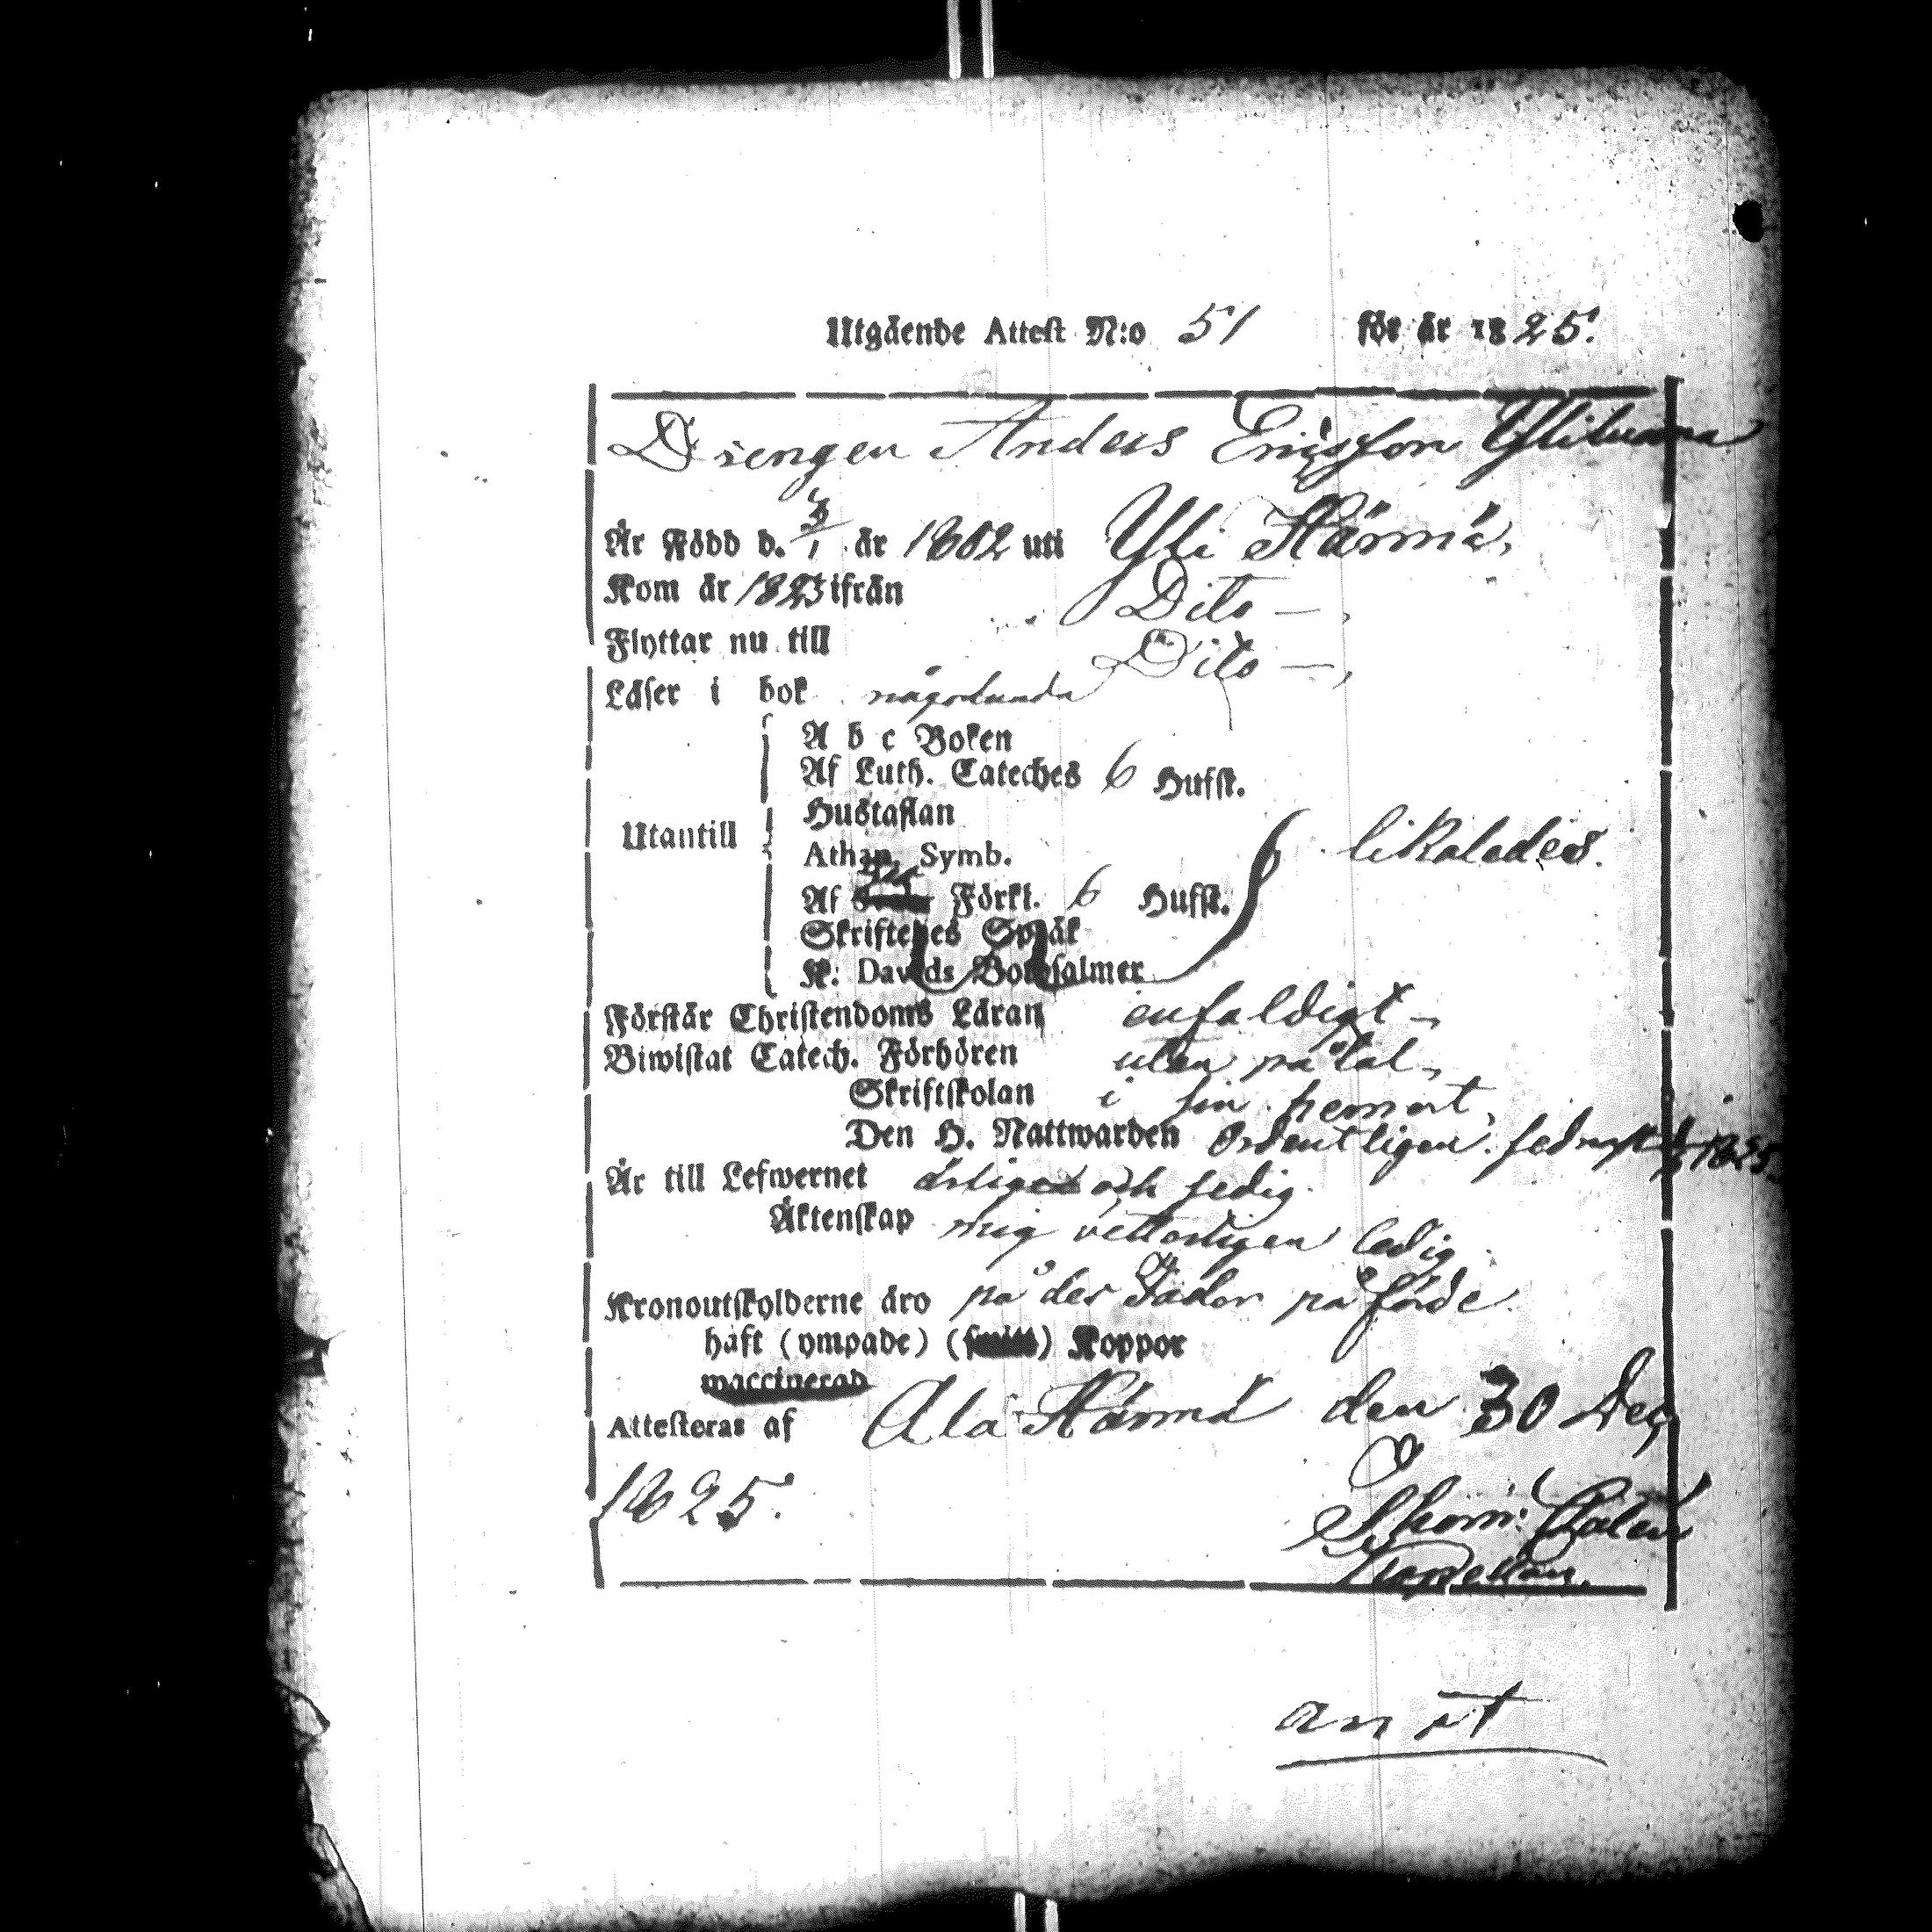 Utgående Attest N:o 51 för år 1825.
Drengen Anders Ericsson
Är Född d. 3/1 år 1802 uti Yli Härmä,
Kom år 1823 ifrån Dito —,
Flyttar nu till Dito —,
Läser i bok någorlunda
A b c Boken
Af Luth. Cateches 6 Hufst.
Hustaflan
Utantill
likaledes.
Athan. Symb.
Af Förkl. 6 Hufst.
Skriftenes Språk
K: Davids Botpsalmer
Förstår Christendoms Läran enfaldigt —,
Biwistat Catech. Förhören utan påtal —,
Skriftskolan i sin hemort,
Den H. Nattwarden ordentligen. sednast 1825.
Är till Lefwernet ärliget och sedig.
Äktenskap mig vetterligen ledig.
Kronoutskylderne äro på des Fader påförde.
haft (ympade) ( ) Koppor
waccinerad
Attesteras af Ala Härmä den 30 Dec
1825.
Thom:
Kapellan.